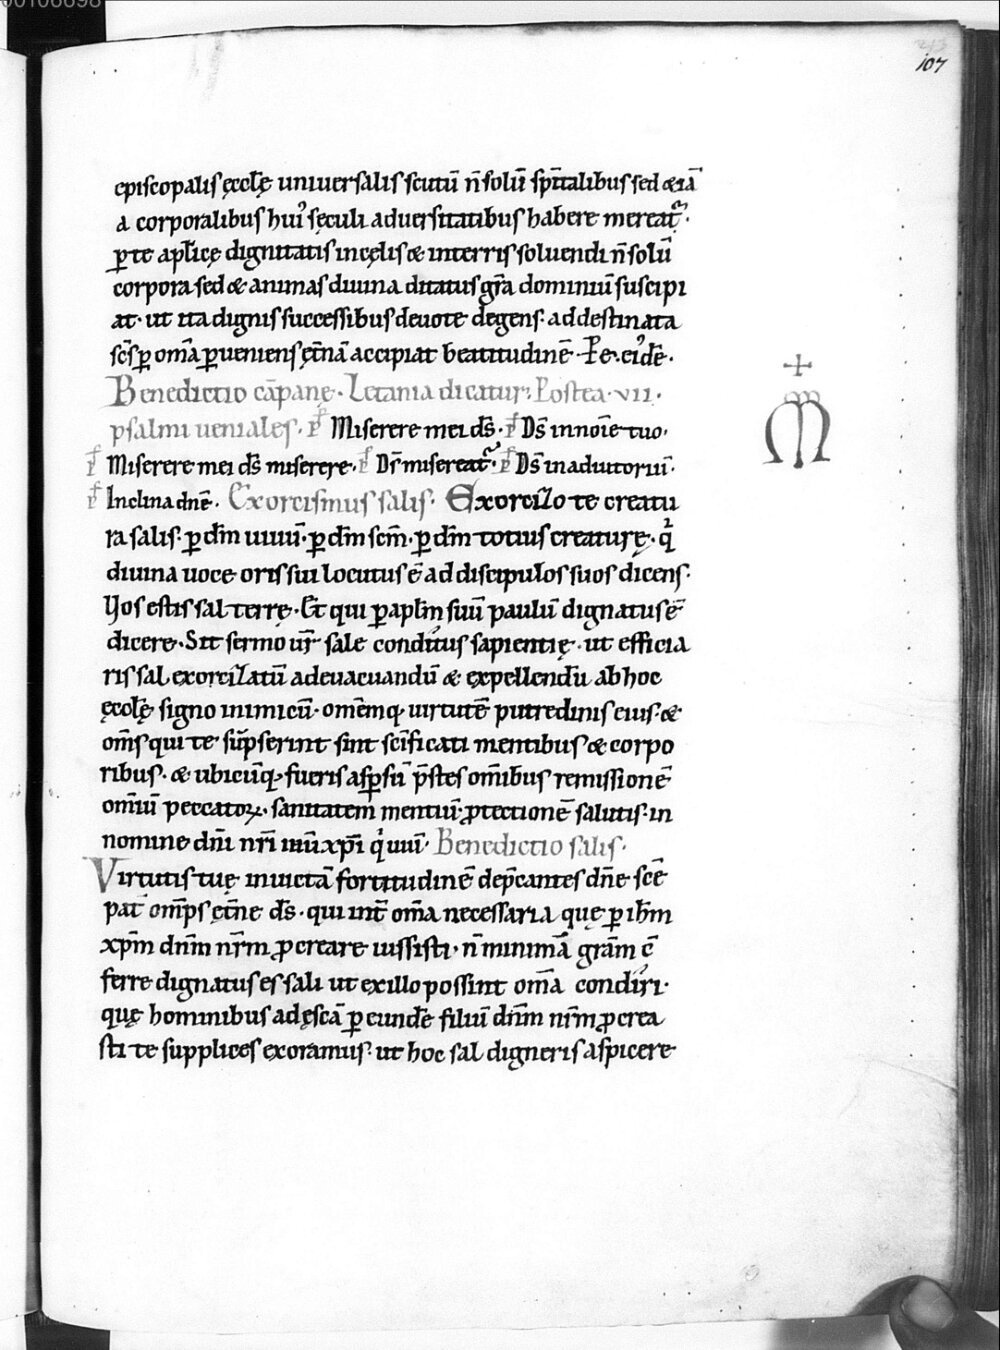 00106698
107
episcopalis ęcclę universalis scutū n̄ solū sp̄italibus sed & iā
a corporalibus huiꝰ sęculi aduersitatibus habere mereat᷑.
ꝑ te ap̄licę dignitatis in cęlis & in terris soluendi n̄ solū
corpora sed & animas diuina ditatus gr̄a dominiū suscipi
at. ut ita dignis successibus deuote degens. ad destinata
sc̄s ꝑ om̄a ꝑueniens ęt̄nā accipiat beatitudinē. Pe. eūdē.
Benedictio cāpanę. Letania dicatur. Postea. vii.
psalmi ueniales. p̄ Miserere mei d̄s. p̄ D̄s in noīe tuo.
p̄ Miserere mei d̄s miserere. p̄ D̄s misereat᷑. p̄ D̄s in adiutoriū.
p̄ Inclina dn̄e. Exorcismus salis. Exorcizo te creatu
ra salis. ꝑ dm̄ uiuū. ꝑ dm̄ scm̄. ꝑ dm̄ totius creaturę. qͥ
diuina uoce oris sui locutus ē ad discipulos suos dicens.
Vos estis sal terrę. Et qui ꝑ apl̄m suū paulū dignatus ē
dicere. Sit sermo ur̄ sale conditus sapientię. ut efficia
ris sal exorcizatū ad euacuandū & expellendū ab hoc
ęcclę signo inimicū. omēmq; uirtutē putredinis eius. &
om̄s qui te sūpserint sint scīficati mentibus & corpo
ribus. & ubicūq; fueris asꝑsū p̄stes om̄ibus remissionē
om̄iū peccatoꝝ. sanitatem mentiū. ꝓtectionē salutis. in
nomine dn̄i nr̄i ihū xp̄i qͥ uiuī. Benedictio salis.
Virtutis tuę inuictā fortitudinē dep̄cantes dn̄e scē
pat̄ om̄ps ęt̄ne d̄s. qui int̄ om̄a necessaria quę ꝑ ih̄m
xp̄m dn̄m nr̄m ꝓcreare iussisti. n̄ minimā grām c̄
ferre dignatus es sali ut ex illo possint om̄a condiri.
quę hominibus ad ęscā ꝑ eundē filiū dn̄m nr̄m ꝓcrea
sti te supplices exoramus. ut hoc sal digneris aspicere
M